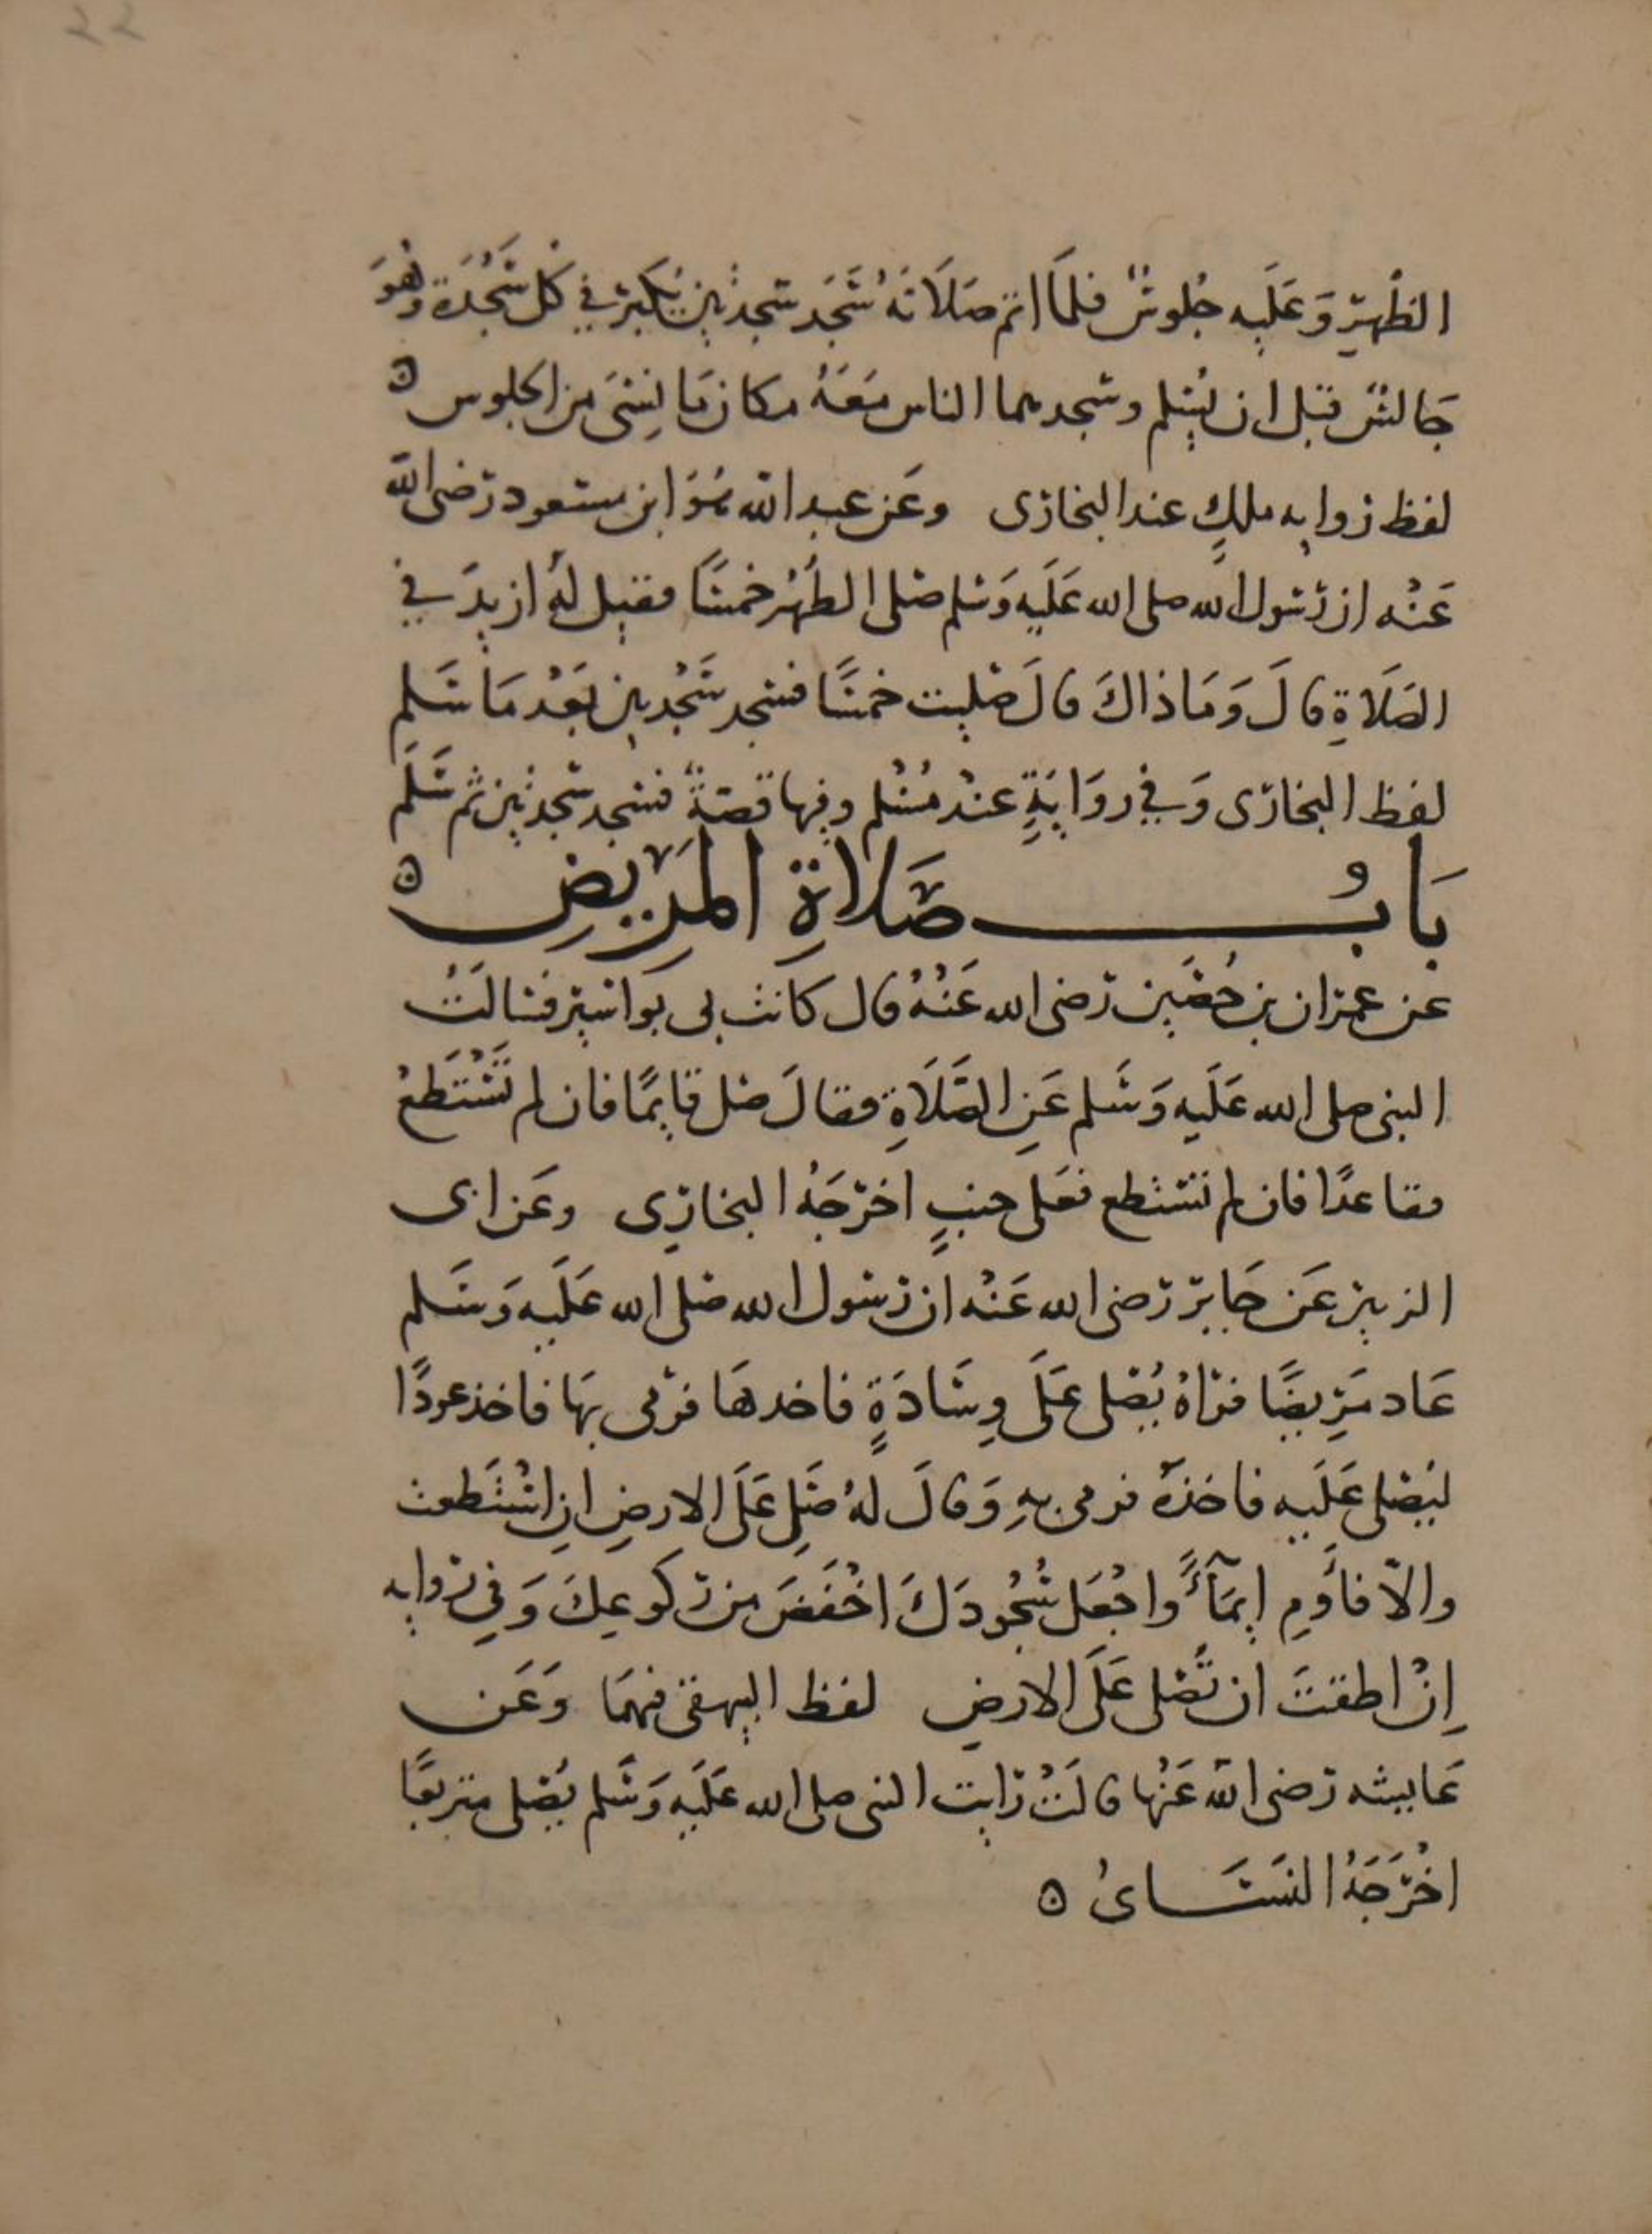 ٢٢
الظُهرِ وَعَلَيه جُلوسٌ فلمَا اتم صَلَاتَهُ سَجَد سجدتَين يُكَبر في كل سَجْدَة وَهْوَ
جَالسٌ قبل ان يُسلم وسجدهما الناس مَعَهُ مكان مَا نِسَى من الجلوس ۞
لفظ روايه ملكٍ عند البخارى وعَن عبد الله هُوَ ابن مسعود رضى الله
عَنْه ان رسول الله صلى الله عَلَيه وَسلم صلى الظُهْر خمسًا فقيل لهُ ازيدَ في
الصَلَاةِ قالَ وَمَا ذاكَ قالَ صليت خمسًا فسجد سَجْدتين بَعْد مَا سَلم
لفظ البخارى وَفي روَايَةٍ عندَ مُسْلم وفيها قصةٌ فسجد سجدتين ثم سَلَّم
بَابُ صَلاةِ المَرِيضِ ۞
عن عمران بن حُصَين رضى الله عَنْهُ قال كانت بى بواسير فسالتُ
النبى صلى الله عَلَيه وَسَلم عَنِ الصَّلَاةِ فقالَ صل قايمًا فان لم تَسْتَطِعْ
فقاعدًا فان لم تستطع فعَلى جنبٍ اخرَجَهُ البخارِى وعَن ابى
الزبير عَن جَابر رضى الله عَنْه ان رسول الله صلى الله عَلَيه وَسَلم
عَاد مَرِيضًا فرَاهُ يُصلى عَلَى وِسَادَةٍ فاخدهَا فرمى بهَا فاخذ عودًا
ليُصلى عَلَيه فاخذهُ فرمى بهِ وَقالَ لهُ صَلِ عَلَى الارضِ ان اسْتَطعت
والاّ فأَومِ إيمَآءً واجْعَل سُجُودَكَ اخْفَضَ من ركوعِكَ وَفي روايه
اِنْ اطقتَ ان تُصَلى عَلَى الارضِ لفظ البيهقى فيهمَا وَعَن
عَايشه رضى الله عَنْها قالَتْ رَايت النبى صلى الله عَلَيه وَسَلم يُصَلى متربعًا
اخْرَجَهُ النسَـــاىُ ۞